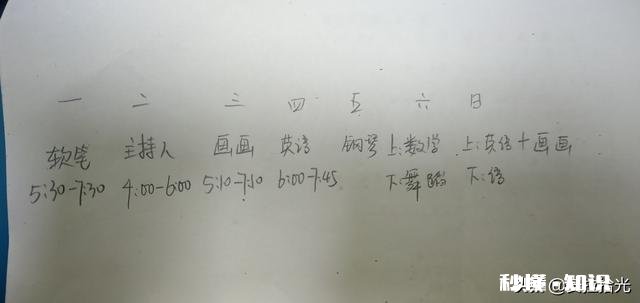 一 二 三 四 五 六 日
软笔 主持人 画画 英语 钢琴 上:数学 上:英语+画画
5:30-7:30 4:00-6:00 5:10-7:10 6:00-7:45 下:舞蹈 下:语
秒懂·知识